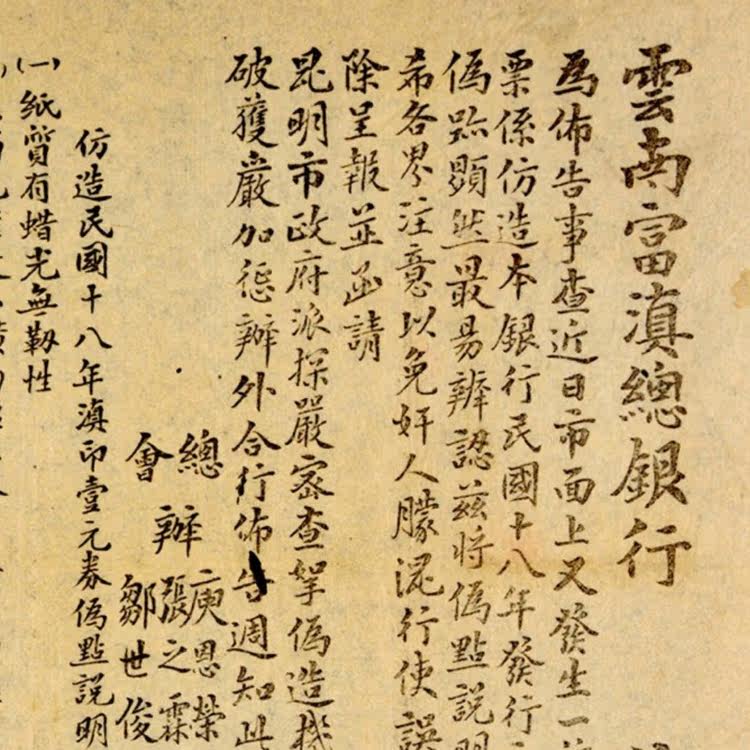 雲南富滇總銀行
為佈告事查近日市面上又發生一
票係仿造本銀行民國十八年發行
偽跡顯然最易辨認茲將偽點說明
希各界注意以免奸人朦混行使誤
除呈報並函請
昆明市政府派探嚴密查拏偽造機
破獲嚴加懲辦外合行佈告週知此
總辦庾恩榮
張之霖
會 鄒世俊
仿造民國十八年滇印壹元券偽點說明
(一)紙質有蜡光無韌性